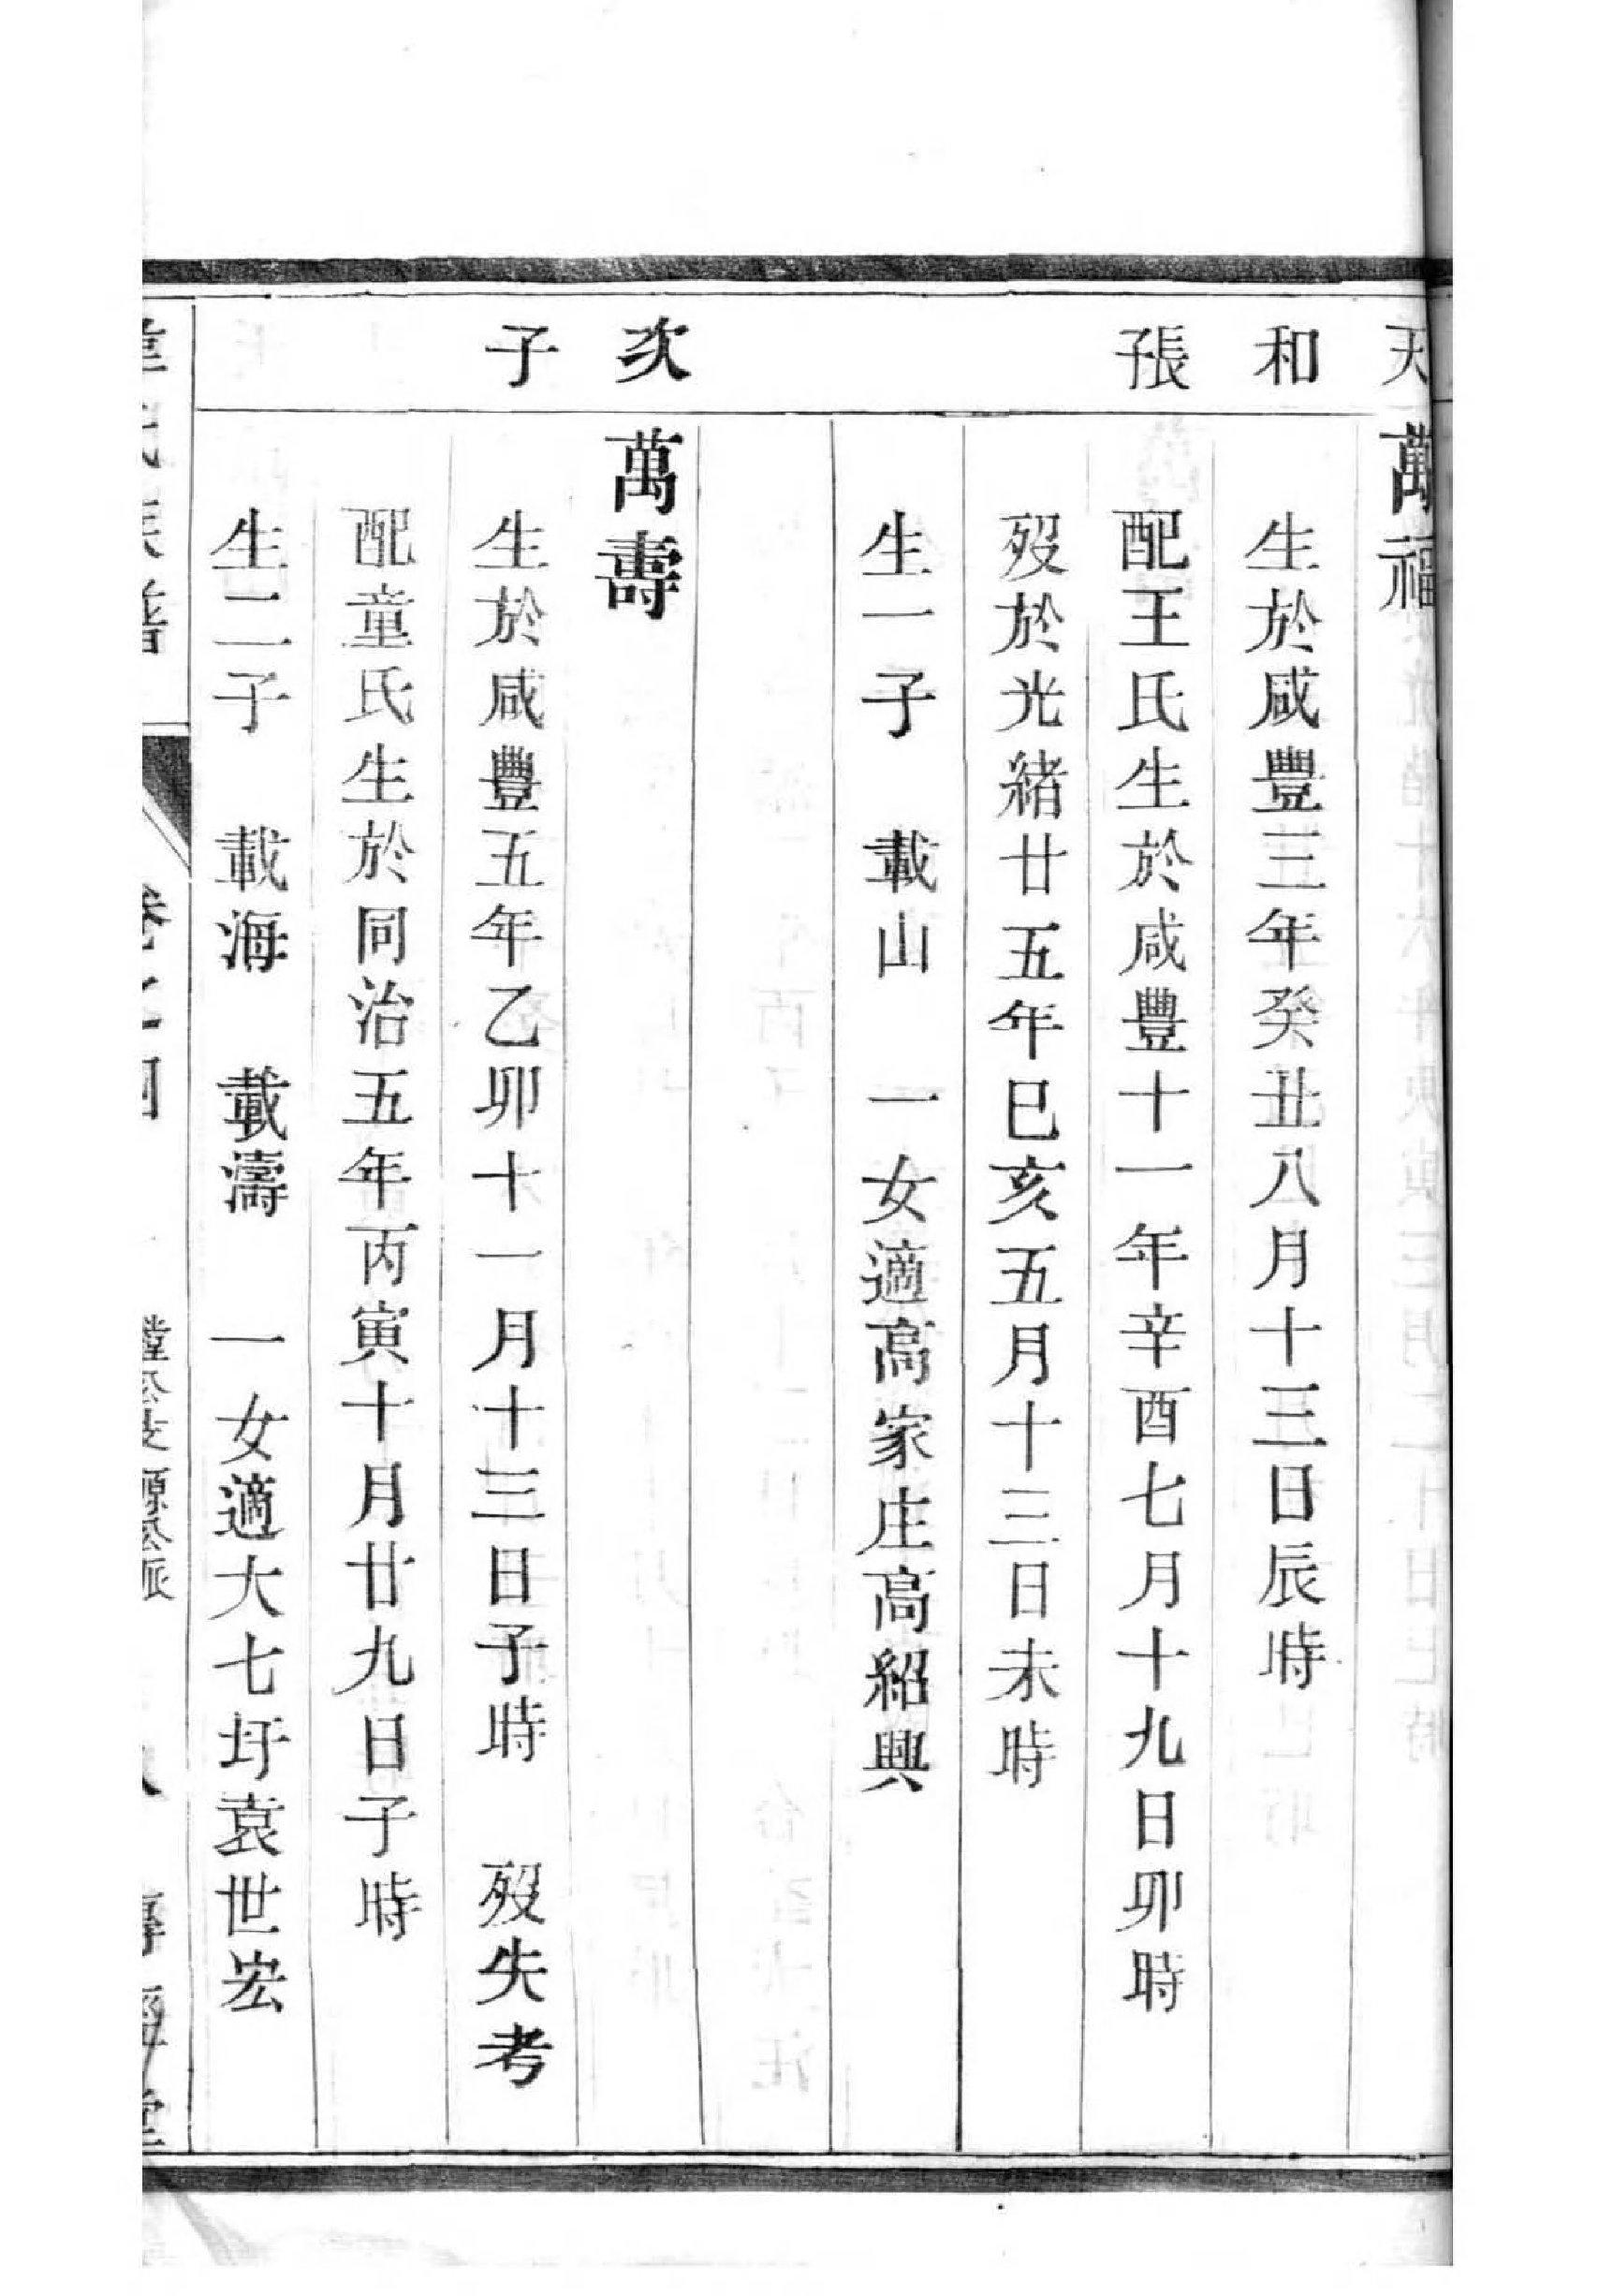 天和長子
萬福
生於咸豐三年癸丑八月十三日辰時
配王氏生於咸豐十一年辛酉七月十九日卯時
歿於光緒廿五年巳亥五月十三日未時
生一子 載山 一女適高家庄高紹興
次子
萬壽
生於咸豐五年乙卯十一月十三日子時 歿失考
配童氏生於同治五年丙寅十月廿九日子時
生二子 載海 載濤 一女適大七圩袁世宏
氏族譜
卷之四
公支 源公派